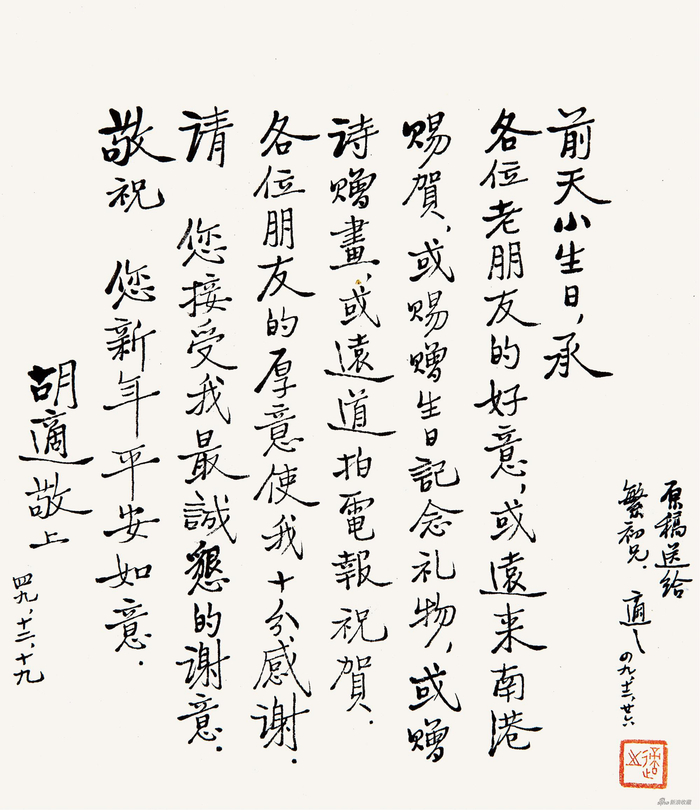 原稿送给
繁初兄 適之
四九、十二、廿六
前天小生日，承
各位老朋友的好意，或遠来南港
賜賀，或賜贈生日記念礼物，或贈
诗贈畫，或遠道拍電報祝賀．
各位朋友的厚意使我十分感谢．
请 您接受我最誠懇的谢意．
敬祝 您新年平安如意．
胡適敬上
四九、十二、十九